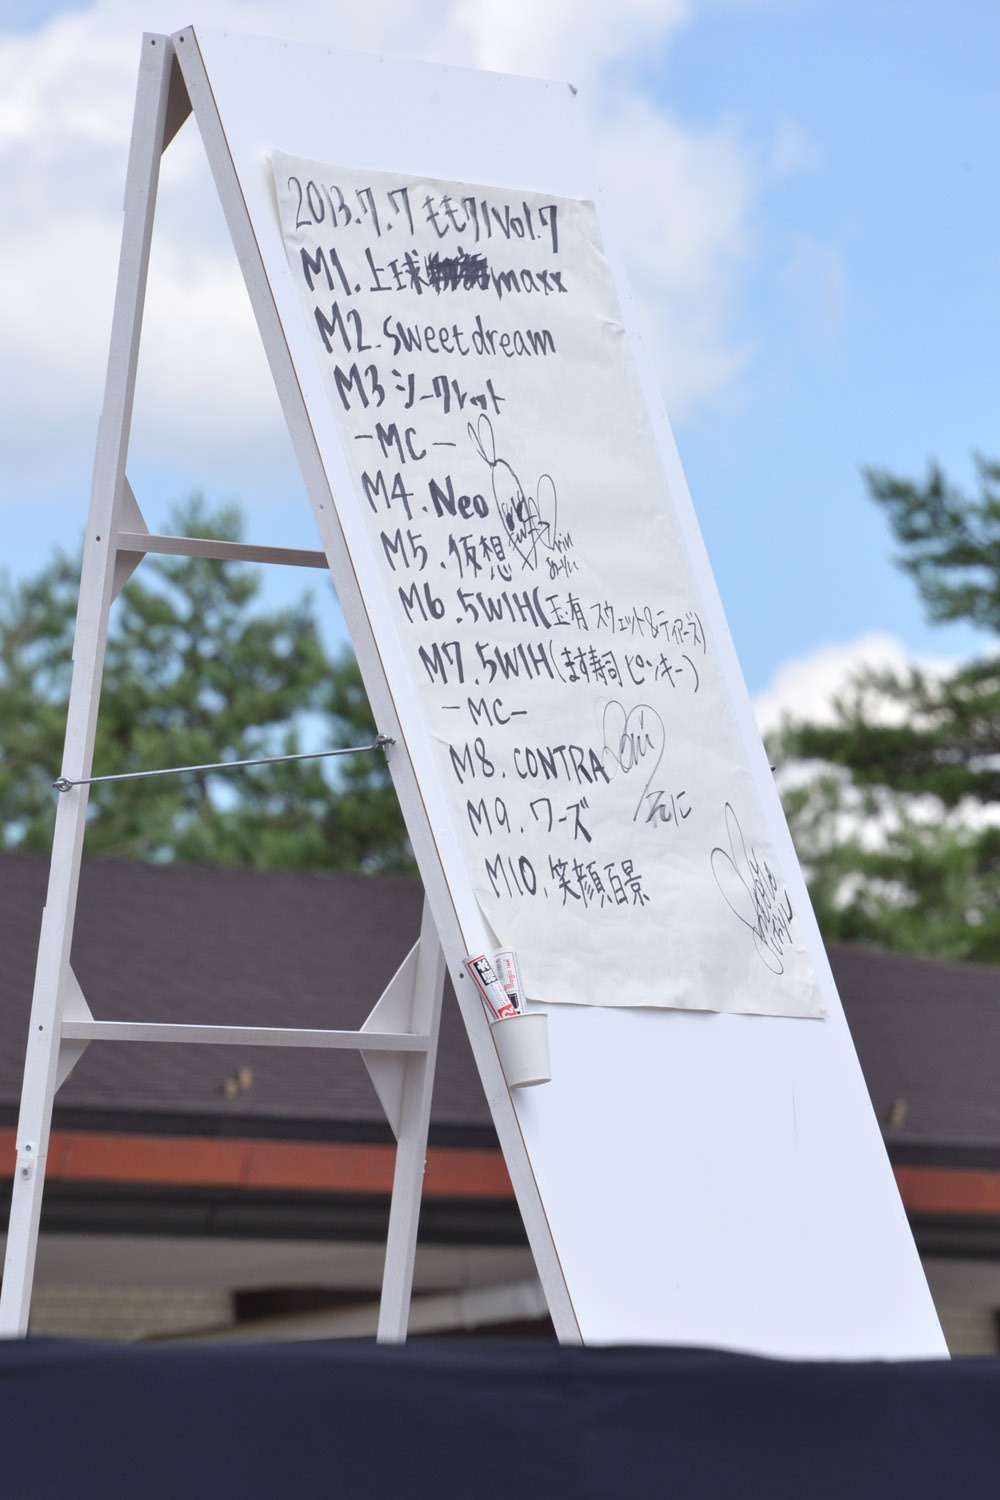 2013.7.7 ももクリVol.7
M1.上球 maxx
M2.sweet dream
M3 シークレット
-MC-
M4.Neo
M5.仮想
M6.5W1H(玉有 スウェット&ティアーズ)
M7.5W1H(ます寿司 ピンキー)
-MC-
M8.CONTRA
M9.ワーズ
M10.笑顔百景
Magic ink